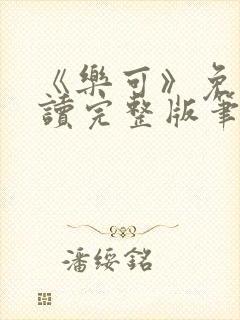 《樂可》免
讀完整版筆
潘綏銘